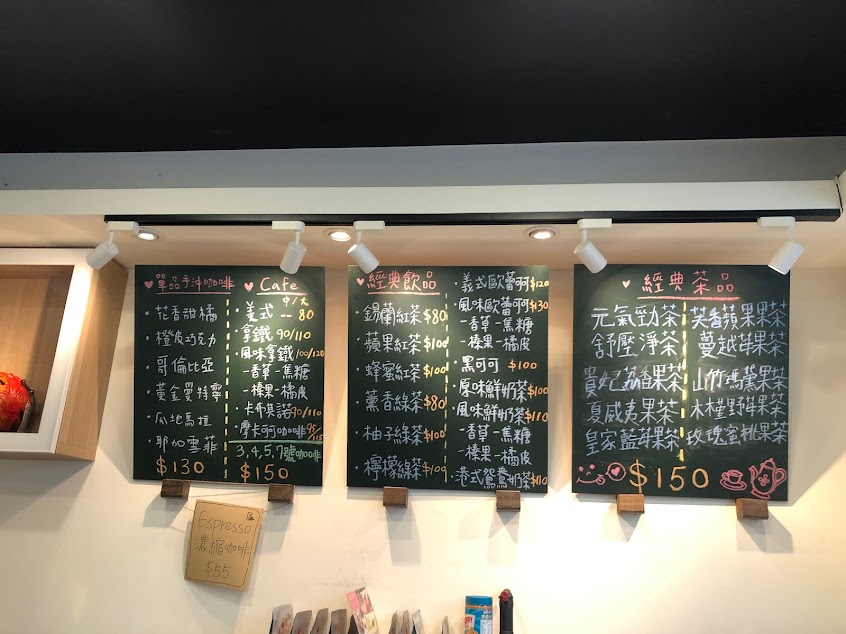 ♥單品手沖咖啡
・花香甜橘
・橙皮巧克力
・哥倫比亞
・黃金曼特寧
・瓜地馬拉
・耶加雪菲
$130
♥Cafe
中/大
・美式 -- 80
・拿鐵 90/110
・風味拿鐵 100/120
-香草-焦糖
-榛果-橘皮
・卡布其諾 90/110
・摩卡咖啡 95/115
3,4,5,7號咖啡
$150
♥經典飲品
・錫蘭紅茶 $80
・蘋果紅茶 $100
・蜂蜜紅茶 $100
・薰香綠茶 $80
・柚子綠茶 $100
・檸檬綠茶 $100
・義式歐蕾 $120
・風味歐蕾 $130
-香草-焦糖
-榛果-橘皮
・黑可可 $100
・原味鮮奶茶 $100
・風味鮮奶茶 $110
-香草-焦糖
-榛果-橘皮
・港式鴛鴦奶茶 $110
♥經典茶品
元氣勁茶
舒壓淨茶
貴妃荔香果茶
夏威夷果茶
皇家藍莓果茶
芙香蘋果果茶
蔓越莓果茶
山竹瑪黛果茶
木槿野莓果茶
玫瑰蜜桃果茶
$150
Espresso
濃縮咖啡
$55